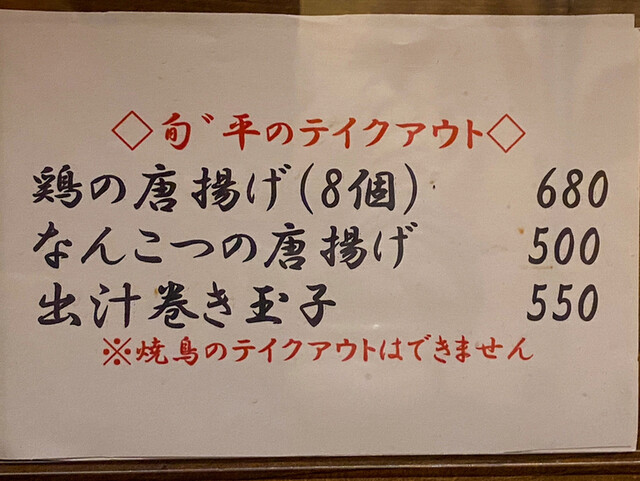 ◇旬゛平のテイクアウト◇
鶏の唐揚げ(8個) 680
なんこつの唐揚げ 500
出汁巻き玉子 550
※焼鳥のテイクアウトはできません